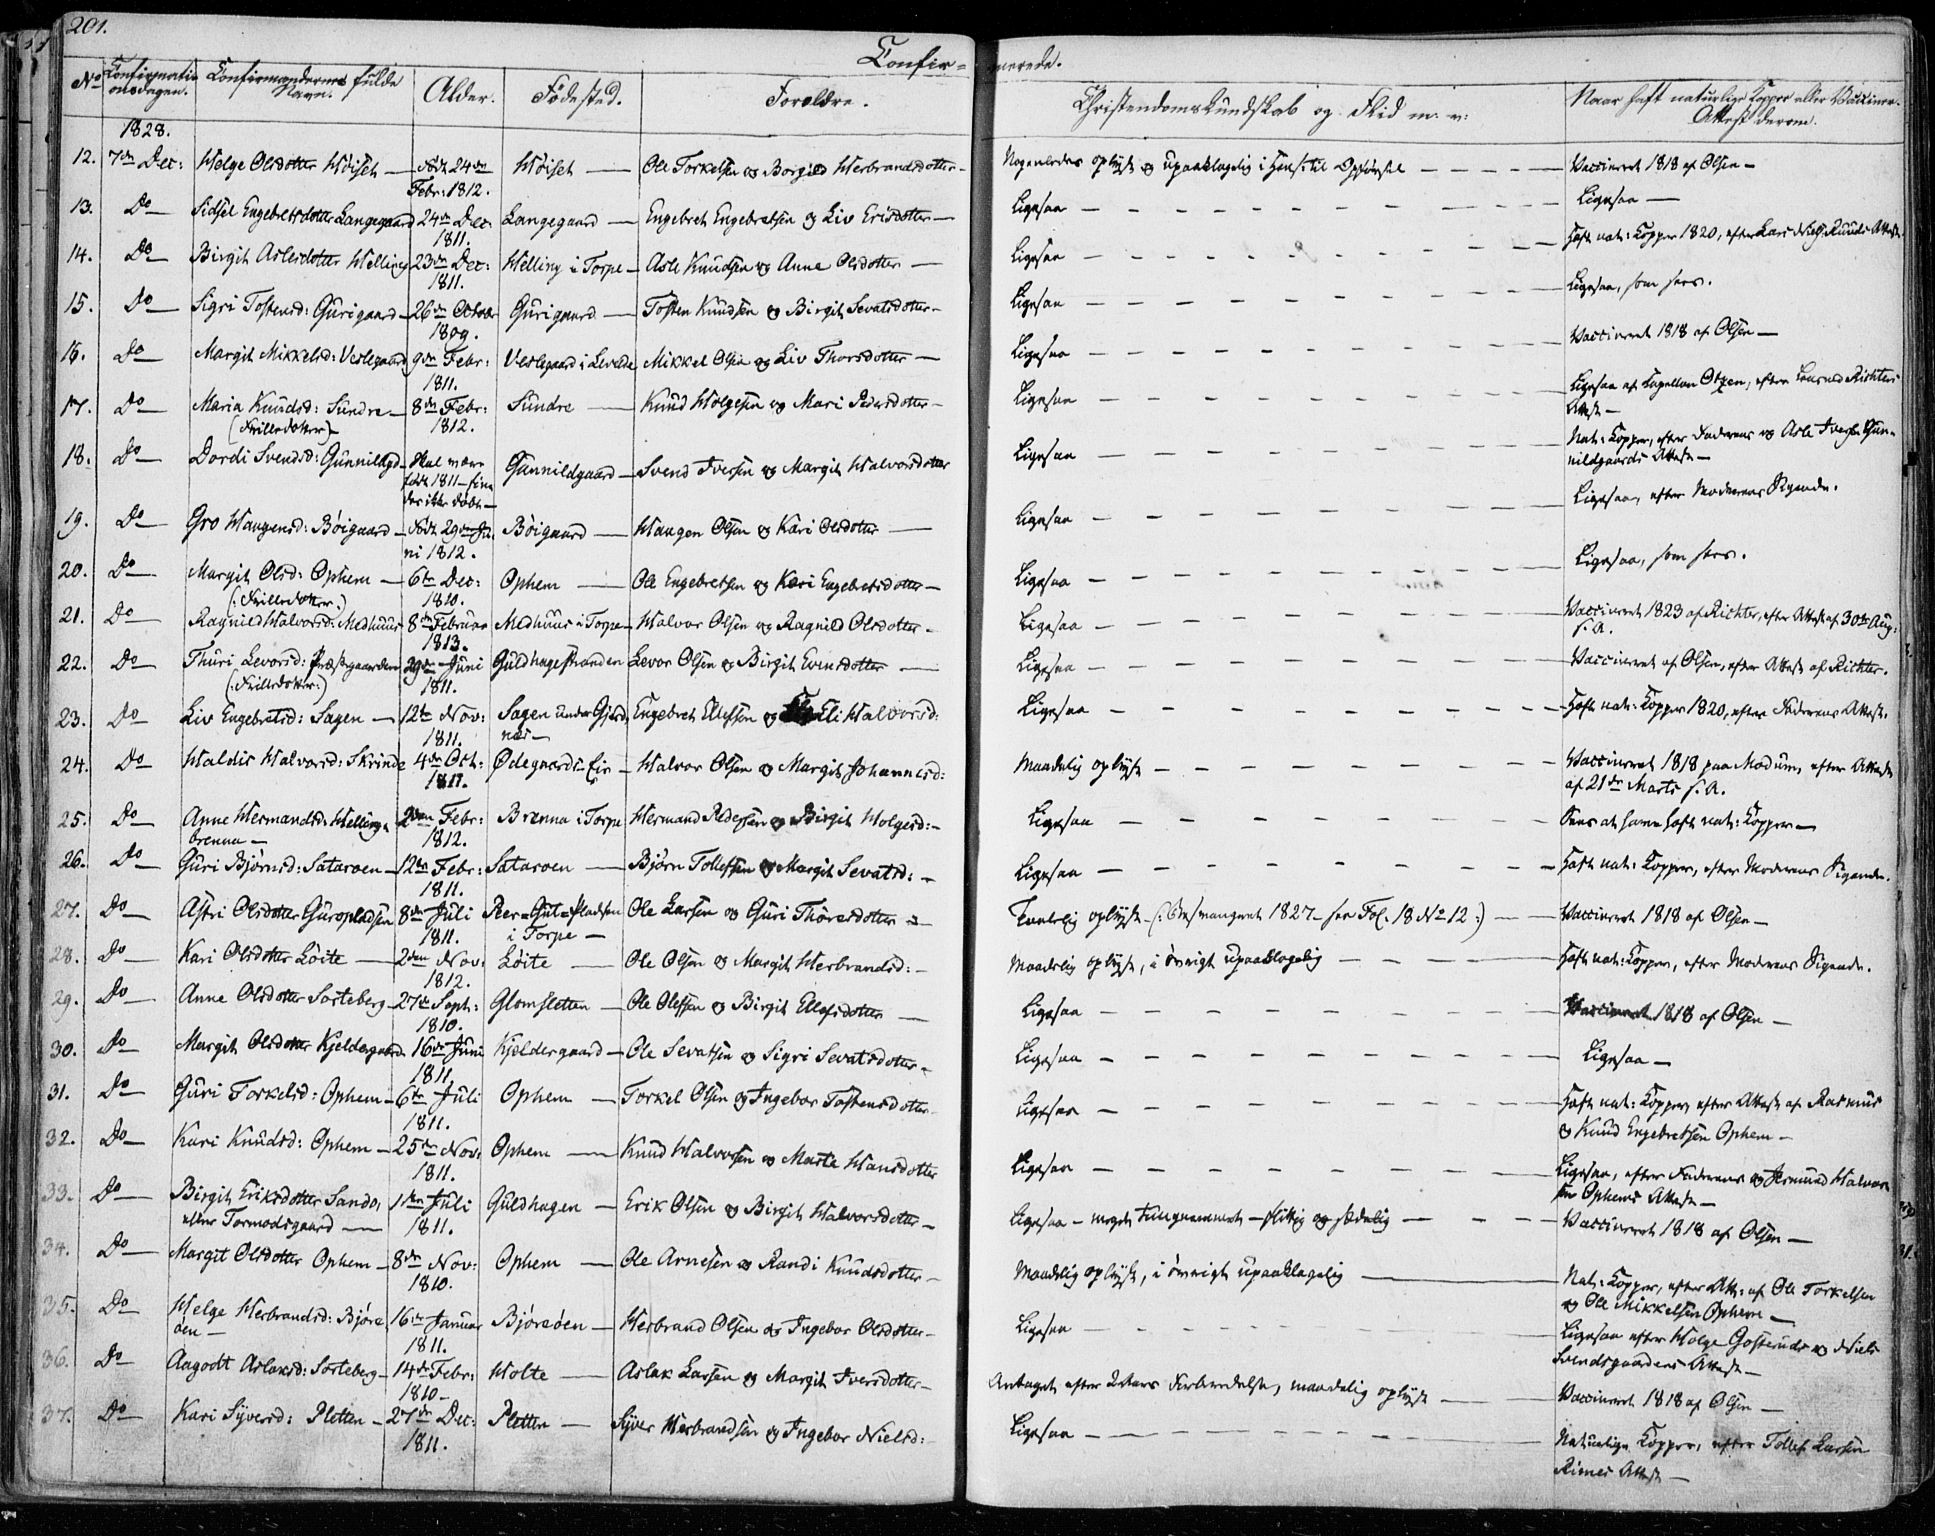 201.
Confir- merede.
No Confirmations dagen. Confirmandernes fulde Navn. Alder. Fødested. Forældre. Christendoms Kundskab og Flid m. v: Naar haft naturlige Kopper eller Vaccineret. Attest derom.
1828.
12. 7de Dec: Helge Olsdotter Høiset — født 24de Febr: 1812. Høiset — Ole Torkelsen og Borgild Herbrandsdotter — Nogenledes oplyst og upaaklagelig i Hensyn til Opførsel — Vaccineret 1818 af Olsen —
13. Do — Sidsel Engebretsdotter Langegaard 24de Dec: 1811. Langegaard — Engebret Engebretsen og Liv Ericsdotter — Ligesaa — Ligesaa —
14. Do — Birgit Aslesdotter Helling 23de Dec: 1811. Helling i Torpe — Asle Knudsen og Anne Olsdotter — Ligesaa — Haft nat: Kopper 1820, efter Lars Ruuds Attest.
15. Do — Sigri Tostensd: Gurigaard — 26de October 1809. Gurigaard — Tosten Knudsen og Birgit Sevatsdotter — Ligesaa — Ligesaa, som hver.
16. Do — Margit Mikkelsd: Veslegaard 9de Febr: 1811. Veslegaard i Mikkel Olsen og Liv Thorsdotter — Ligesaa — Vaccineret 1818 af Olsen —
17. Do — Maria Knudsd: Sundre — (: Frilledotter :) 8de Febr: 1812. Sundre — Knud Holgesen og Mari Pedersdotter — Ligesaa — Ligesaa af Kapellan efter Richters Attest —
18. Do — Dordi Svendsd: Gunnildgd — skal være født 1811 — findes ikke døbt — Gunnildgaard — Svend Iversen og Margit Halvorsdotter Ligesaa — Nat: Kopper, efter Faderens og Asle Iversen Gunnildgaards Attest —
19. Do — Gro Haagensd: Bøigaard — født 29de Juni 1812. Bøigaard — Haagen Olsen og Kari Olsdotter — Ligesaa — Ligesaa, efter Moderens Sigende.
20. Do — Margit Olsd: Ophem — (: Frilledotter :) 6te Dec: 1810. Ophem — Ole Engebretsen og Kari Engebretsdotter — Ligesaa — Ligesaa, som hver.
21. Do — Ragnild Halvorsd: Medhuus 8de Februar 1813. Medhuus i Torpe — Halvor Olsen og Ragnild Olsdotter — Ligesaa — Vaccineret 1823 af Richter, efter Attest af 30te Aug: s. A.
22. Do — Thuri Levorsd: Præstegaarden (: Frilledotter :) 29de Juni 1811. Guldhagestranden Levor Olsen og Birgit Evensdotter — Ligesaa — Vaccineret af Olsen, efter Attest af Richter.
23. Do — Liv Engebretsd: Sagen — 12te Nov: 1811. Sagen under Gjerdnes — Engebret Ellefsen og Eli Halvorsd: Ligesaa — Haft nat: Kopper 1820, efter Faderens Attest.
24. Do — Haldis Halvorsd: Skrinde 4de Oct: 1811. Ødegaard i Halvor Olsen og Margit Johannesd: Maadelig oplyst — Vaccineret 1818 paa Modum, efter Attest af 21de Marts s. A.
25. Do — Anne Hermandsd: Hellingbrenna — 2den Febr: 1812. Brenna i Torpe Hermand Pedersen og Birgit Holgesd: — Ligesaa — Sees at have haft nat: Kopper —
26. Do — Guri Bjørnsd: Sataroen — 12te Febr: 1811. Sataroen — Bjørn Tollefsen og Margit Sevatsd: — Ligesaa — Haft nat: Kopper, efter Moderens Sigende.
27. Do — Astri Olsdotter Guropladsen 8de Juli 1811. Peer-Gut-Pladsen i Torpe — Ole Larsen og Guri Thoresdotter — oplyst — 1827 — see Fol: 18 No 12 :) — Vaccineret 1818 af Olsen —
28. Do — Kari Olsdotter Løite — 2den Nov: 1812. Løite — Ole Olsen og Margit Herbrandsd: — Maadelig oplyst, i øvrigt upaaklagelig — Haft nat: Kopper, efter Moderens Sigende.
29. Do — Anne Olsdotter Sorteberg — 27de Sept: 1810. Glomsletten — Ole Olessen og Birgit Ellefsdotter — Ligesaa — Vaccineret 1818 af Olsen —
30. Do — Margit Olsdotter Kjeldergaard 16de Juni 1811. Kjeldergaard — Ole Sevatsen og Sigri Sevatsdotter — Ligesaa — Ligesaa —
31. Do — Guri Torkelsd: Ophem — 6te Juli 1811. Ophem — Torkel Olsen og Ingebor Tostensdotter — Ligesaa — Haft nat: Kopper, efter Attest af Rasmus og Knud Engebretsen Ophem —
32. Do — Kari Knudsd: Ophem — 25de Nov: 1811. Ophem — Knud Halvorsen og Marte Hansdotter Ligesaa — Ligesaa, efter Faderens og Halvorsen Ophems Attest —
33. Do — Birgit Eriksdotter Sando, eller Tormodsgaard — 1ste Juli 1811. Guldhagen — Erik Olsen og Birgit Halvorsdotter — Ligesaa — meget tungnemmet — flittig og sædelig — Vaccineret 1818 af Olsen —
34. Do — Margit Olsdotter Ophem — 8de Nov: 1810. Ophem — Ole Arnesen og Randi Knudsdotter — Maadelig oplyst, i øvrigt upaaklagelig — Nat: Kopper, efter Att: af Ole Torkelsen og Ole Mikkelsen Ophem —
35. Do — Helge Herbrandsd: Bjøreøen — 16de Januar 1811. Bjøreøen — Herbrand Olsen og Ingebor Olsdotter — Ligesaa — Ligesaa efter Holge og Niels Svendsgaardens Attest —
36. Do — Aagodt Aslaksd: Sorteberg — 14de Febr: 1810 — Holte — Aslak Larsen og Margit Iversdotter — Antaget efter 2 Aars Forberedelse, maadelig oplyst — Vaccineret 1818 af Olsen —
37. Do — Kari Syversd: Pletten — 27de Dec: 1811. Pletten — Syver Herbrandsen og Ingebor Nielsd: Ligesaa — Naturlige Kopper, efter Tollef Larsen Attest —